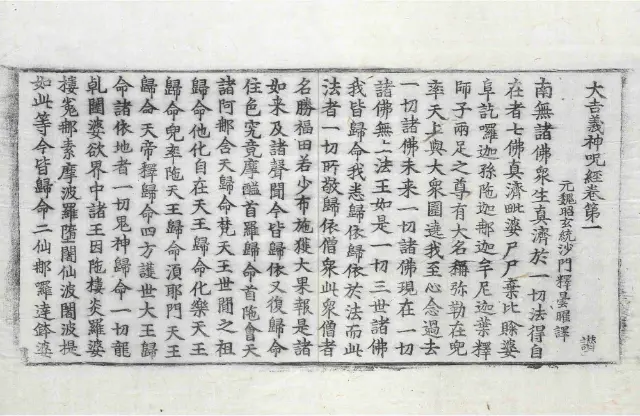 大吉義神呪經卷第一
元魏昭玄統沙門釋曇曜譯 讃
南無諸佛衆生真濟於一切法得自
在者七佛真濟毗婆尸尸葉比賒婆
阜訖囉迦孫陁迦郍迦牟尼迦葉釋
師子兩足之尊有大名稱弥勒在兜
率天上與大衆圍遶我至心念過去
一切諸佛未來一切諸佛現在一切
諸佛無上法王如是一切三世諸佛
我皆歸命我悉歸依歸依於法而此
法者一切所敬歸依僧衆此衆僧者
名勝福田若少布施獲大果報是諸
如来及諸聲聞今皆歸依又復歸命
住色究竟摩醯首羅歸命首陁會天
諸阿郍含天歸命梵天王世間之祖
歸命他化自在天王歸命化樂天王
歸命兜率陁天王歸命湏耶門天王
歸命天帝釋歸命四方護世大王歸
命諸依地者一切鬼神歸命一切龍
乹闥婆欲界中諸王因陁樓炎羅婆
摟寃郍素摩波羅墮闍仙波闍波提
如此等今皆歸命二仙郍羅達鉢婆